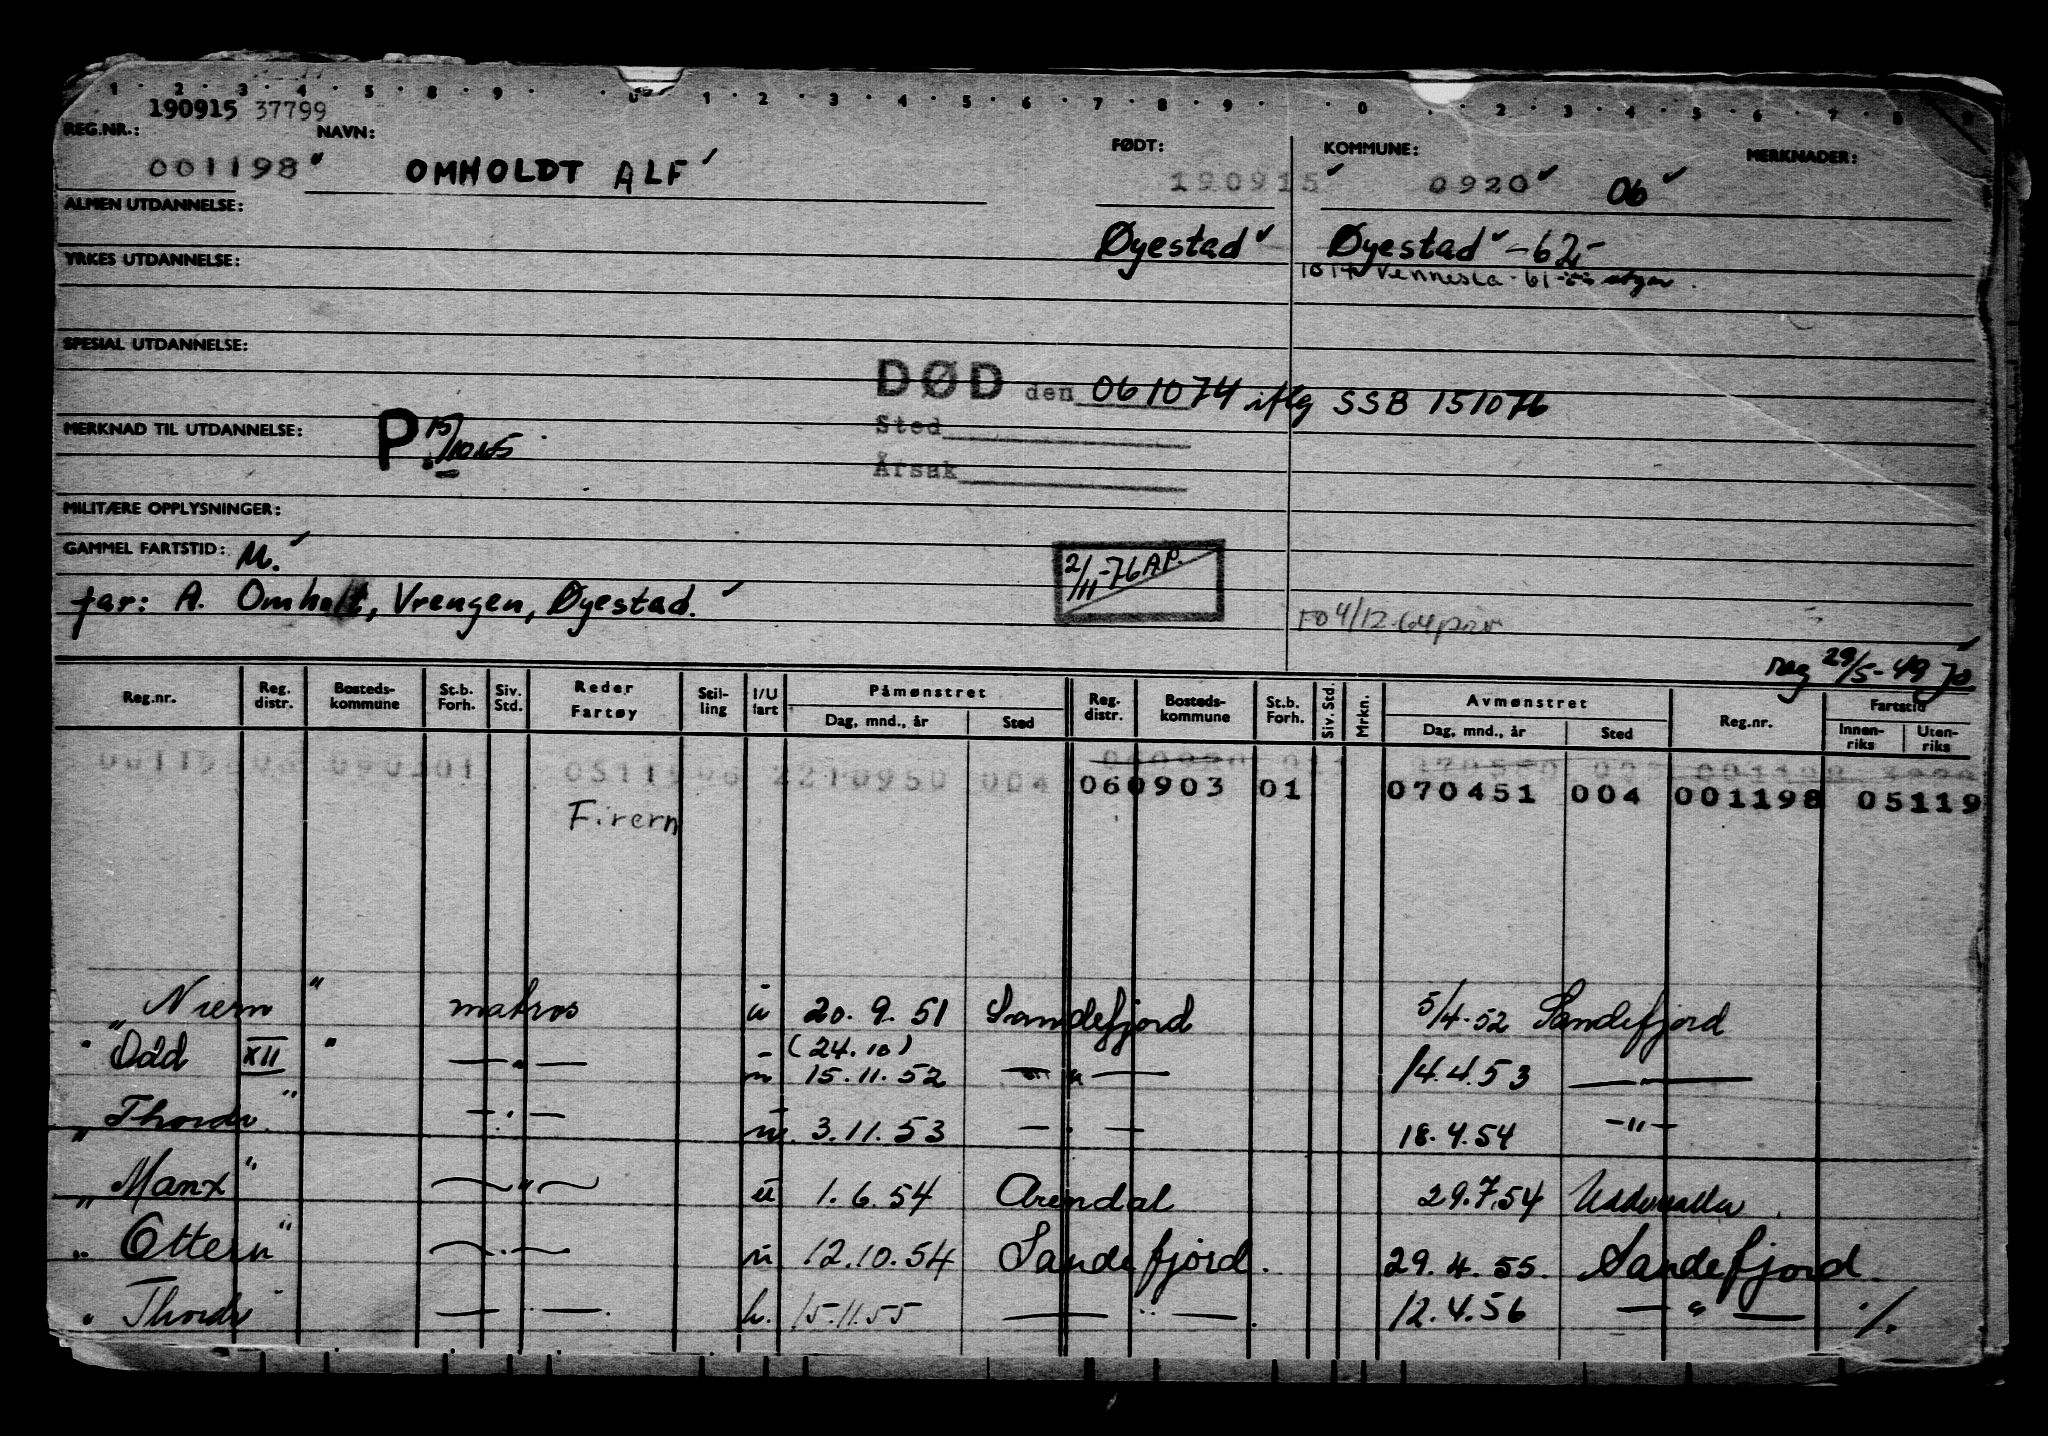 1 2 3 4 5 8 9 0 1 2 3 4 5 6 7 8 9 0 2 3 4 5 6 7 8 9
190915 37799
REG.NR.: NAVN: FØDT: KOMMUNE: MERKNADER:
001198 OMHOLDT ALF 190915 0920 06
ALMEN UTDANNELSE:
Øyestad Øyestad -62-
YRKES UTDANNELSE:
Vennesla - 61
SPESIAL UTDANNELSE:
DØD den 061074 iflg SSB 151076
MERKNAD TIL UTDANNELSE: P. 15/10 65
Sted
Årsak
MILITÆRE OPPLYSNINGER:
GAMMEL FARTSTID: M.
2/11-76 A.P.
far: A. Omholt, Vrengen, Øyestad.
4/12-64
reg 29/5-49
Reg.nr. Reg. distr. Bosteds-kommune St.b. Forh. Siv. Std. Reder Fartøy Stil-ling I/U fart Påmønstret Dag, mnd., år Sted Reg. distr. Bosteds-kommune St.b. Forh. Siv. Std. Mrkn. Avmønstret Dag, mnd., år Sted Reg.nr. Fartstid Innen-riks Uten-riks
2210950 004
060903 01 070451 004 001198 05119
Firern
"Niern" matros u 20.9.51 Sandefjord 5/4-52 Sandefjord
"Odd XII" — " — (24.10)
15.11.52 — " — 14.4.53 —
"Thordr" — " — u. 3.11.53 — " — 18.4.54 — " —
"Manx" — " — u 1.6.54 Arendal 29.7.54 Uddevalla.
"Ottern" — " — u 12.10.54 Sandefjord. 29.4.55. Sandefjord.
"Thordr" — " — 15.11.55 — " —. 12.4.56 — " — ./.